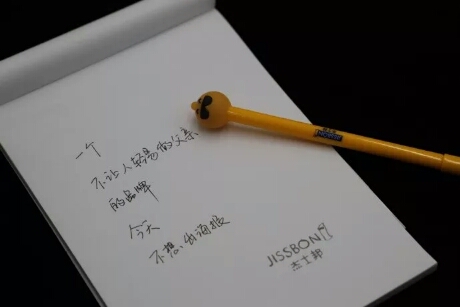 一个
不让人轻易做父亲
的品牌
今天
不想出海报
JISSBON
杰士邦